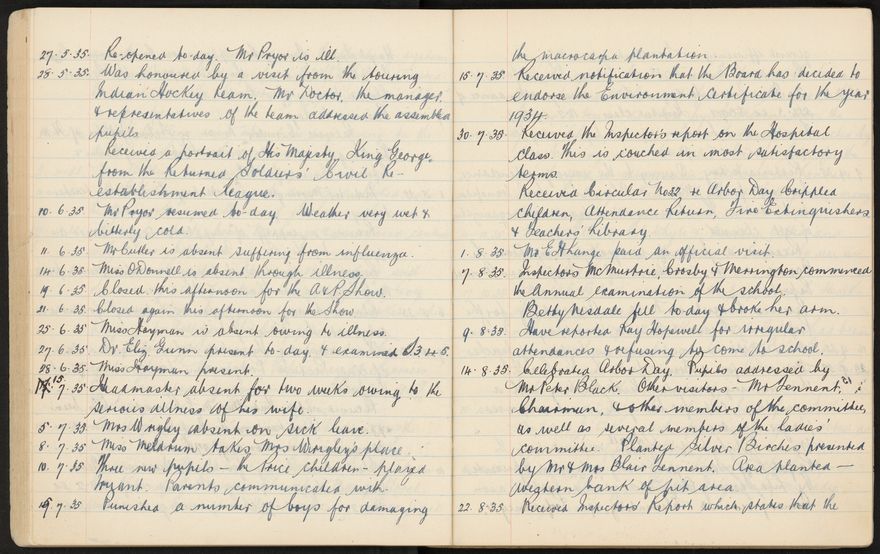 27.5.35. Re-opened to-day. Mr Pryor is ill.
28.5.35. Was honoured by a visit from the touring
Indian Hockey team. Mr Doctor, the manager,
& representatives of the team addressed the assembled
pupils.
Received a portrait of His Majesty King George,
from the Returned Soldiers' Civil Re-
establishment league.
10.6.35. Mr Pryor resumed to-day. Weather very wet &
bitterly cold.
11.6.35. Mr Cutler is absent suffering from influenza.
14.6.35. Miss O'Donnell is absent through illness.
19.6.35. Closed this afternoon for the A & P. Show.
21.6.35. Closed again this afternoon for the Show
25.6.35. Miss Hayman is absent owing to illness.
27.6.35. Dr. Eliz. Gunn present to-day & examined
28.6.35. Miss Hayman present.
7.35. Headmaster absent for two weeks owing to the
serious illness of his wife.
5.7.35. Mrs Wrigley absent on sick leave.
8.7.35. Miss Meldrum takes Mrs Wrigley's place.
10.7.35. Three new pupils — children — played
truant. Parents communicated with
15.7.35 Punished a number of boys for damaging
the macrocarpa plantation.
15.7.35 Received notification that the Board has decided to
endorse the Environment Certificate for the year
1934.
30.7.35. Received the Inspector's report on the Hospital
class. This is couched in most satisfactory
terms.
Received Circular No 32 re Arbor Day, Crippled
children, Attendance Return, Fire Extinguishers
& Teachers' Library.
1.8.35. Mr paid an official visit.
7.8.35. Inspectors McMurtrie, Crosby & Merrington commenced
the Annual examination of the school.
Betty Nesdale fell to-day & broke her arm.
9.8.35. Have reported Kay Hopwell for irregular
attendances & refusing to come to school.
14.8.35. Celebrated Arbor Day. Pupils addressed by
Mr Peter Black. Other visitors - Mr Tennent,
Chairman, & other members of the committee,
as well as several members of the ladies'
committee. Planted Silver Birches presented
by Mr & Mrs Blair Tennent. Area planted —
western bank of pit area
22.8.35. Received Inspectors' Report which states that the